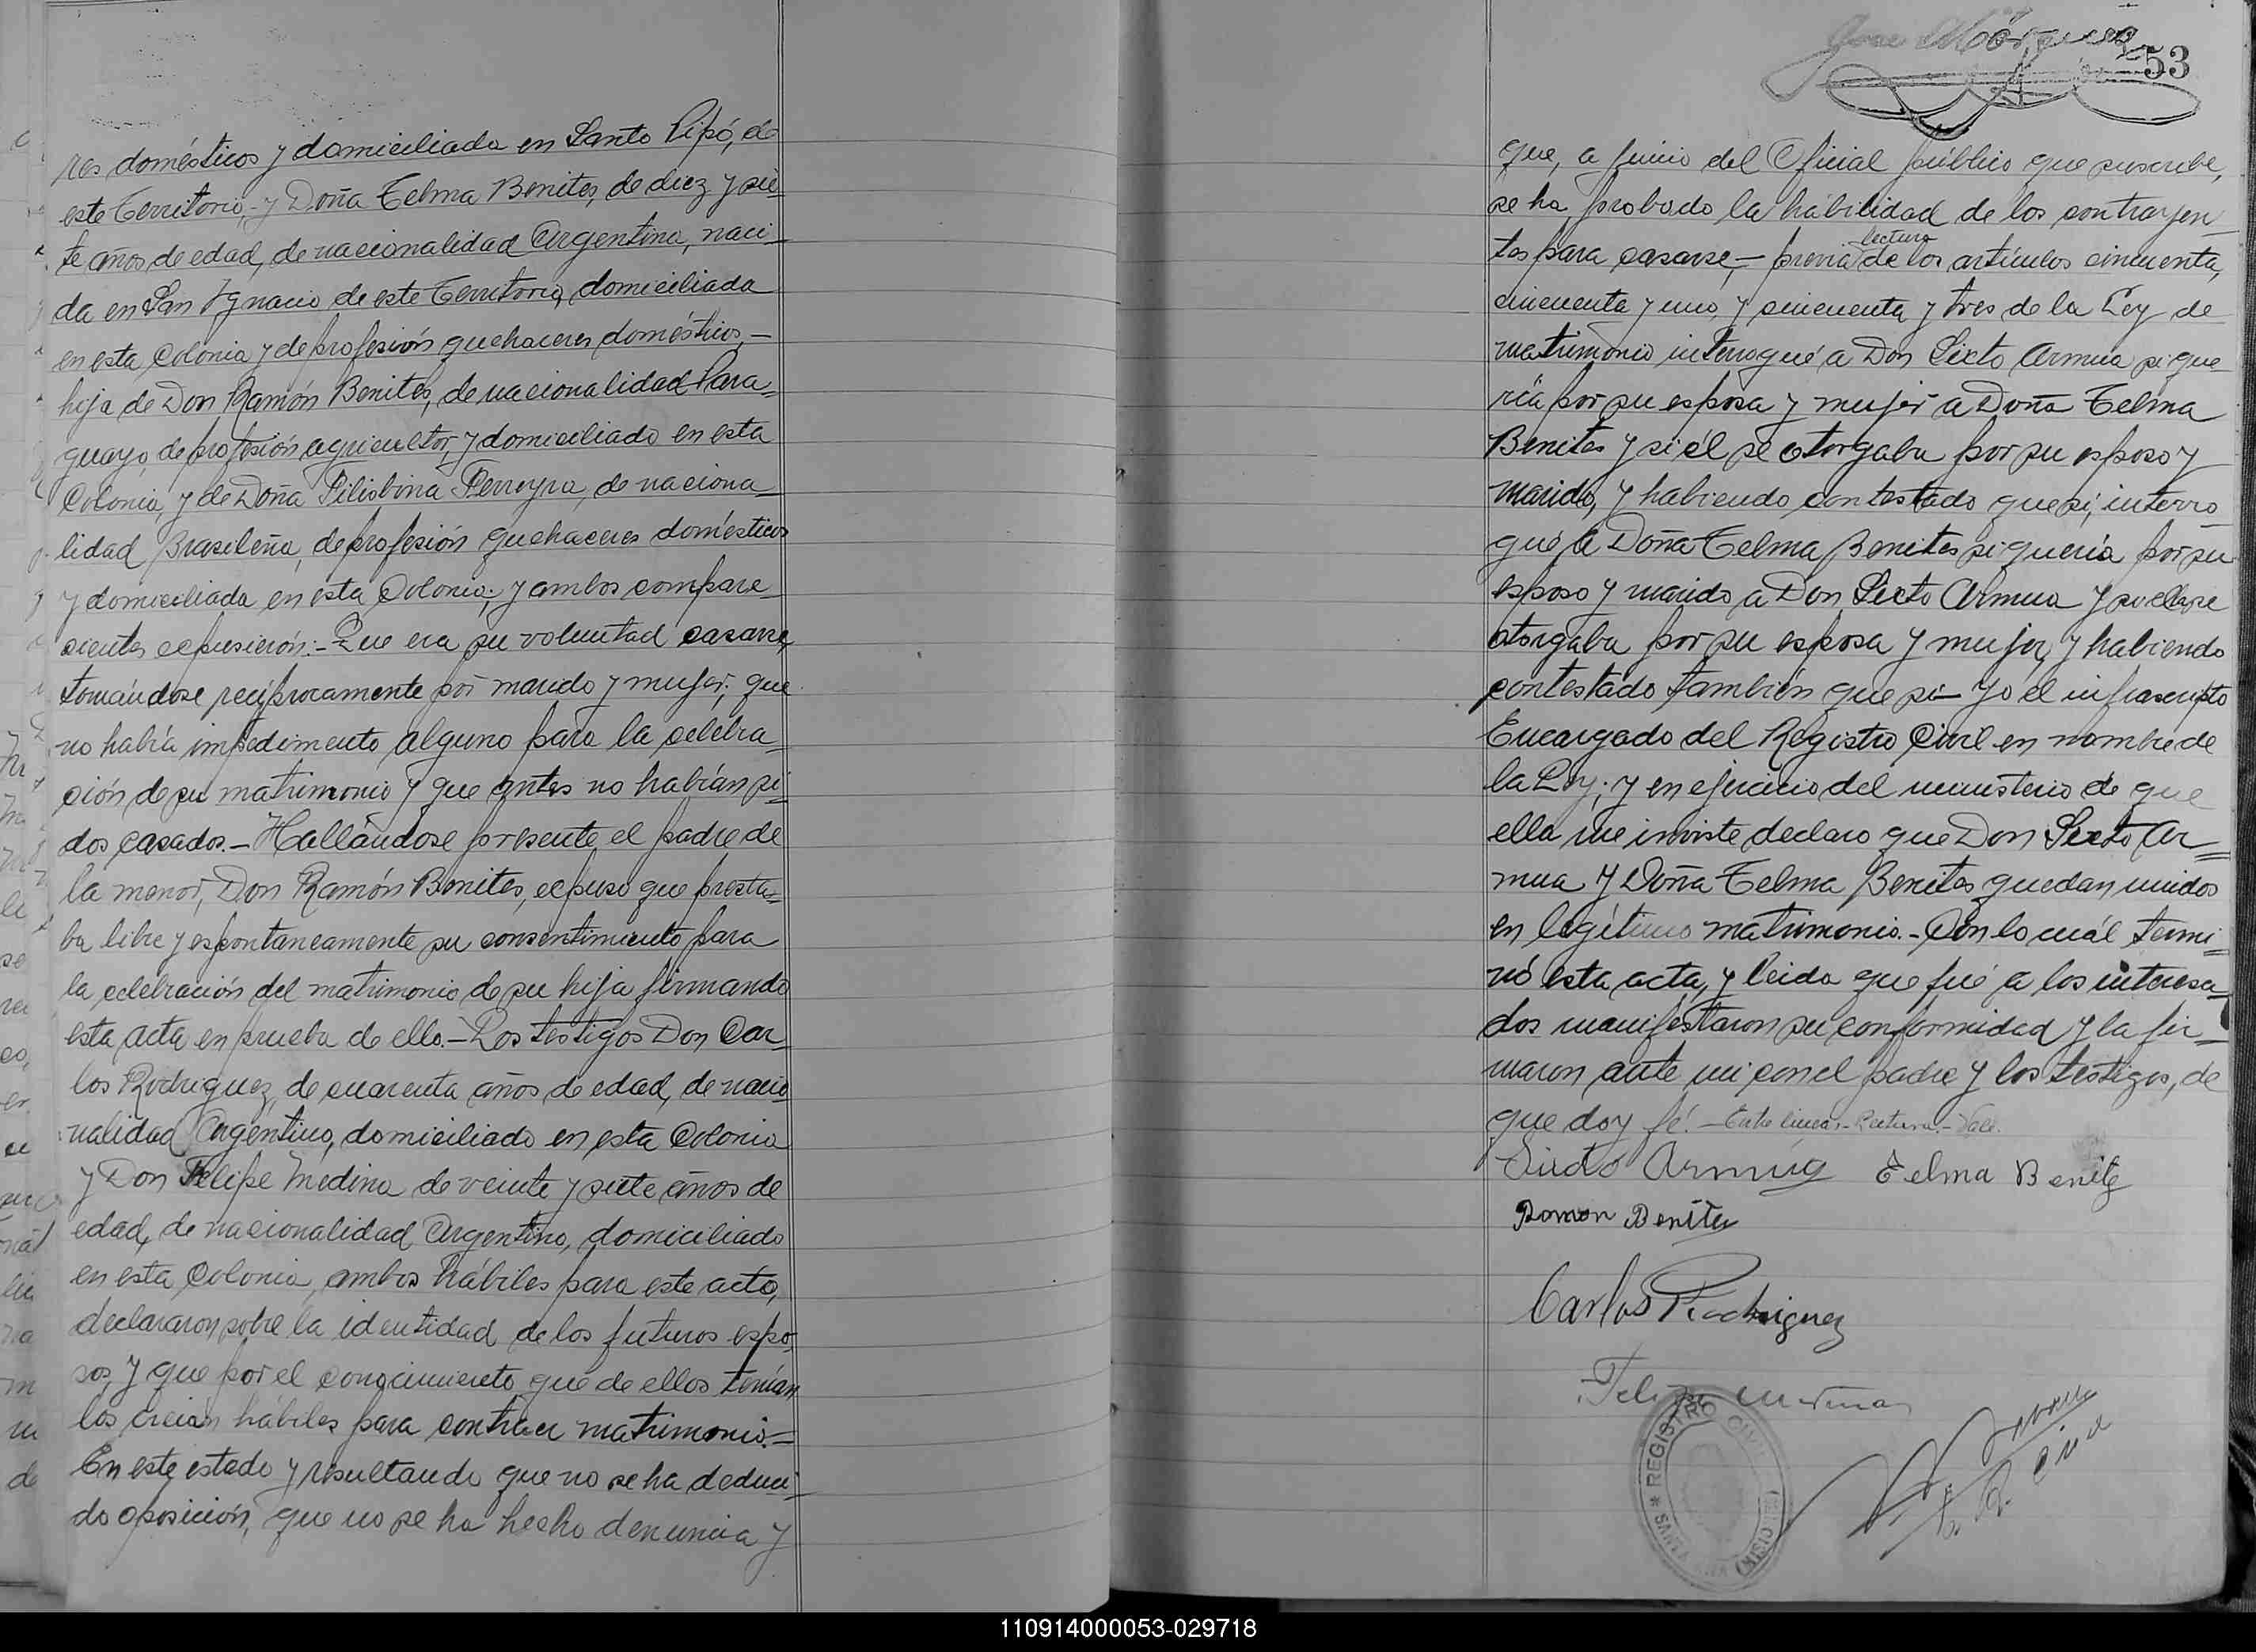 res domésticos y domiciliada en Santo Pipó, de
este Territorio,- y Doña Telma Benites, de diez y sie-
te años de edad, de nacionalidad Argentina, naci-
da en San Ygnacio de este Territorio, domiciliada
en esta Colonia y de profesión quehaceres domésticos,-
hija de Don Ramón Benites, de nacionalidad Para-
guayo, de profesión agricultor, y domiciliado en esta
Colonia, y de Doña Filisbina Ferreyra, de naciona-
lidad Brasileña, de profesión quehaceres domésticos
y domiciliada en esta Colonia; y ambos compare-
cientes expusieron:- Que era su voluntad casarse,
tomándose recíprocamente por marido y mujer; que
no había impedimento alguno para la celebra-
ción de su matrimonio y que antes no habían si-
dos casados.- Hallándose presente el padre de
la menor, Don Ramón Benites, expuso que presta-
ba libre y espontaneamente su consentimiento para
la celebración del matrimonio de su hija firmando
esta acta en prueba de ello.- Los testigos Don Car-
los Rodriguez, de cuarenta años de edad, de nacio-
nalidad Argentino, domiciliado en esta Colonia
y Don Felipe Medina de veinte y siete años de
edad, de nacionalidad Argentino, domiciliado
en esta Colonia, ambos hábiles para este acto,
declararon sobre la identidad de los futuros espo-
sos, y que por el conocimiento que de ellos tenían
los creían hábiles para contraer matrimonio.-
En este estado y resultando que no se ha deduci-
do oposición, que no se ha hecho denuncia y
53
que, a juicio del Oficial público que suscribe,
se ha probado la habilidad de los contrayen-
tes para casarse,- previa lectura de los artículos cincuenta,
cincuenta y uno, y cincuenta y tres de la Ley de
matrimonio interrogué a Don Sixto Armua si que-
ría por su esposa y mujer a Doña Telma
Benites y si él se otorgaba por su esposo y
marido, y habiendo contestado que si, interro-
gué a Doña Telma Benites si quería por su
esposo y marido a Don Sixto Armua y si ella se
otorgaba por su esposa y mujer, y habiendo
contestado también que si- Yo el infrascripto
Encargado del Registro Civil en nombre de
la Ley; y en ejercicio del ministerio de que
ella me inviste declaro que Don Sixto Ar-
mua y Doña Telma Benites quedan unidos
en legítimo matrimonio.- Con lo cuál termi-
nó esta acta, y leida que fué a los interesa-
dos manifestaron su conformidad y la fir-
maron ante mi con el padre y los testigos, de
que doy fé.- Entre lineas- Lectura.- Vale.
Sixto Armua Telma Benitez
Ramon Benites
Carlos Rodriguez
Felipe Medina
REGISTRO CIVIL
SANTA ANA (MISIONES)
110914000053-029718